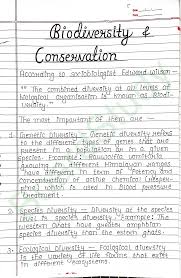 Biodiversity &
Conservation
According to sociobiologist Edward Wilson-
"The combined diversity at all levels of
biological organisation is known as Biodi-
versity."
The most important of them are —
1. Genetic diversity — Genetic diversity refers
to the different types of genes that are
present in a population or in a given
species. Example: Rauwolfia vomitoria
growing in different Himalayan ranges
have different in term of "Potency and
concentration of active chemical (reser-
pine) which is used in Blood pressure
treatment.
2. Species diversity — Diversity at the species
level is species diversity. Example: The
western Ghats have greater amphibian
species diversity than the eastern ghats.
3. Ecological diversity — Ecological diversity
is the variety of life forms that exist
in different ecosystems.